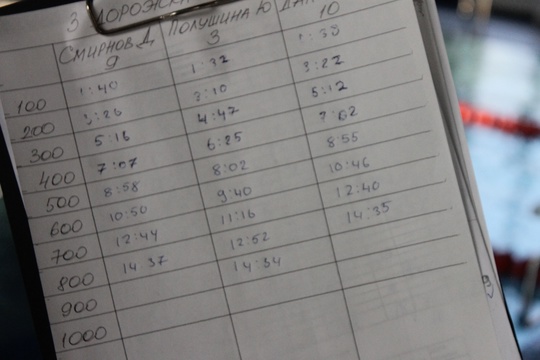 3 ДОРОЖКА
СМИРНОВ Д. ПОЛУШИНА Ю
9 3 10
100 1:40 1:32 1:38
200 3:26 3:10 3:22
300 5:16 4:47 5:12
400 7:07 6:25 7:02
500 8:58 8:02 8:55
600 10:50 9:40 10:46
700 12:44 11:16 12:40
800 14:37 12:52 14:35
900 14:34
1000